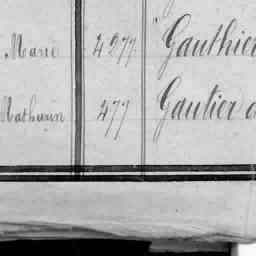 Marie 4277 " Gauthier
Mathurin 477 Gautier